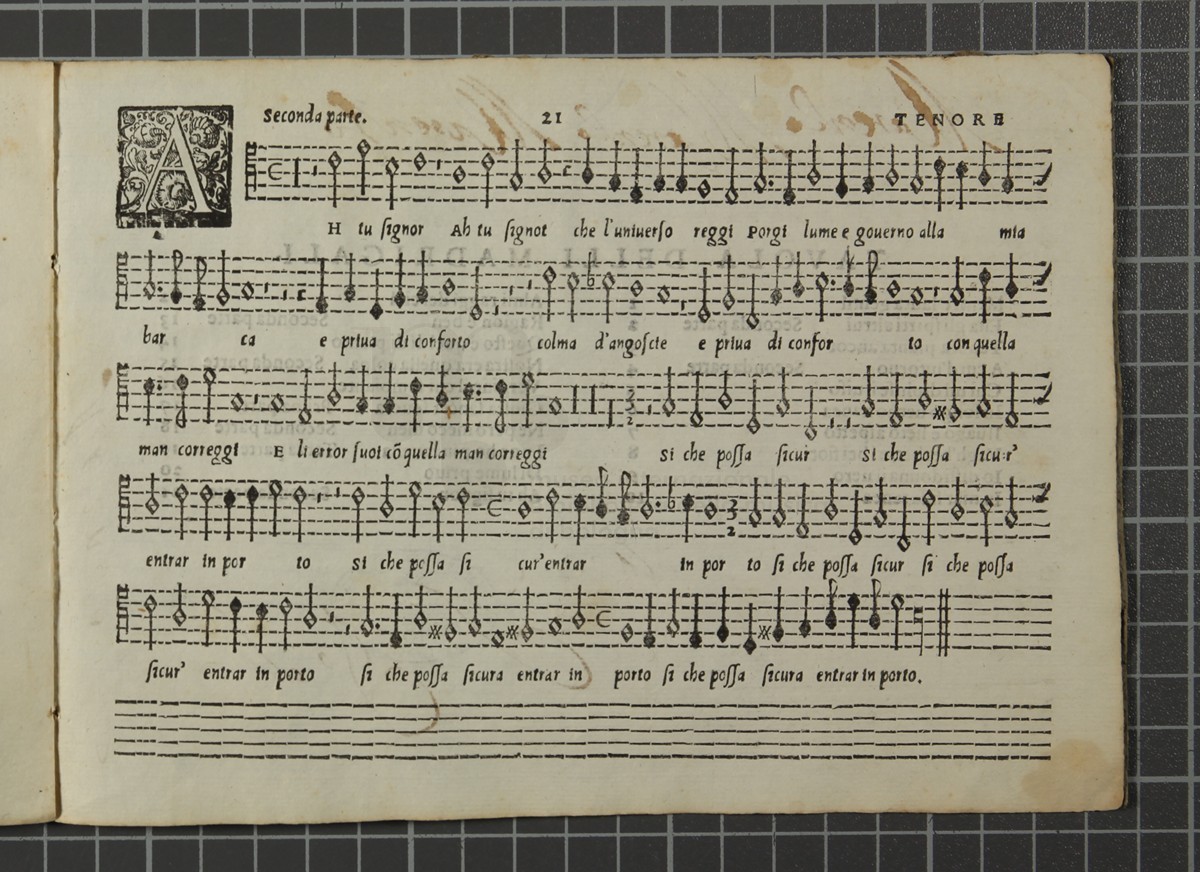 Seconda parte. 21 TENORE
AH tu ſignor Ah tu ſignot che l'uniuerſo reggi Porgi lume e gouerno alla mia
bar ca e priua di conforto colma d'angoſcie e priua di confor to con quella
man correggi E li error ſuoi cõ quella man correggi Si che poſſa ſicur Si che poſſa ſicur'
entrar in por to si che poſſa ſi cur'entrar in por to ſi che poſſa ſicur ſi che poſſa
ſicur' entrar in porto ſi che poſſa ſicura entrar in porto ſi che poſſa ſicura entrar in porto.